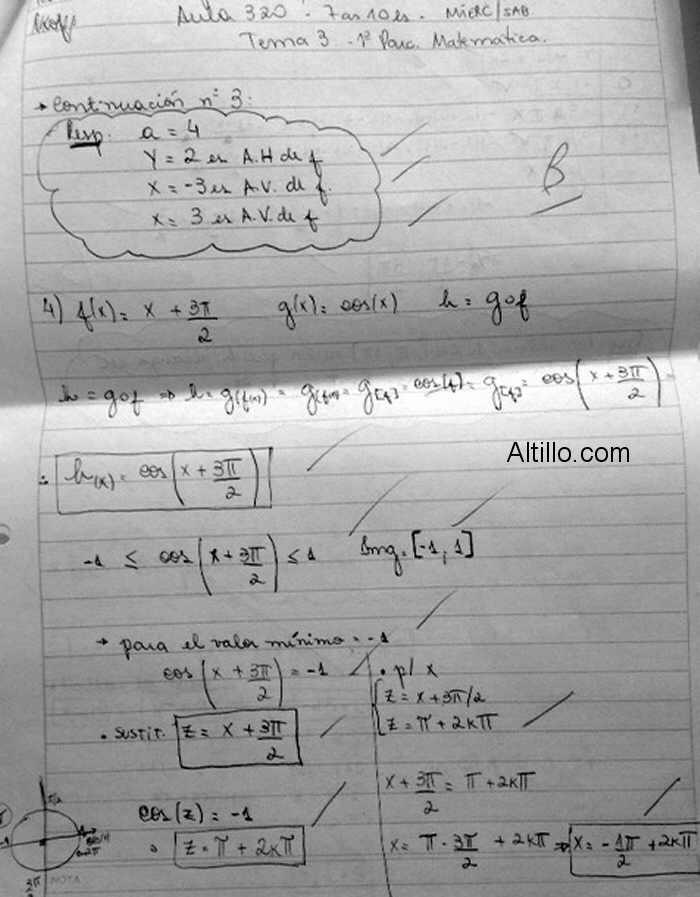 Aula 320 - 7 as 10 es. MIERC/SAB
Tema 3 - 1º Parc. Matemática.
→ continuación nº 3:
Resp. a = 4
Y = 2 es A.H de f
X = -3 es A.V. de f.
X = 3 es A.V. de f
B
4) f(x) = x + 3π/2 g(x) = cos(x) h = gof
h = gof ⇒ h = g(f(x)) = g(f(x)) = g[f] = cos[f] = g[f] = cos(x + 3π/2) =
Altillo.com
∴ h(x) = cos(x + 3π/2)
-1 ≤ cos(x + 3π/2) ≤ 1 Img. [-1, 1]
→ para el valor mínimo = -1
cos(x + 3π/2) = -1
• sustit. z = x + 3π/2
cos(z) = -1
z = π + 2kπ
• p/ x
z = x + 3π/2
z = π + 2kπ
x + 3π/2 = π + 2kπ
x = π - 3π/2 + 2kπ ⇒ x = -1π/2 + 2kπ
3π/2
NOTA